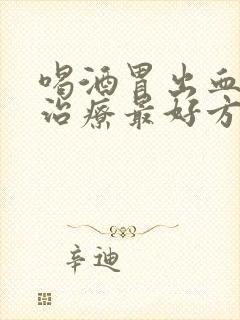 喝酒胃出血
治疗最好方
辛迪